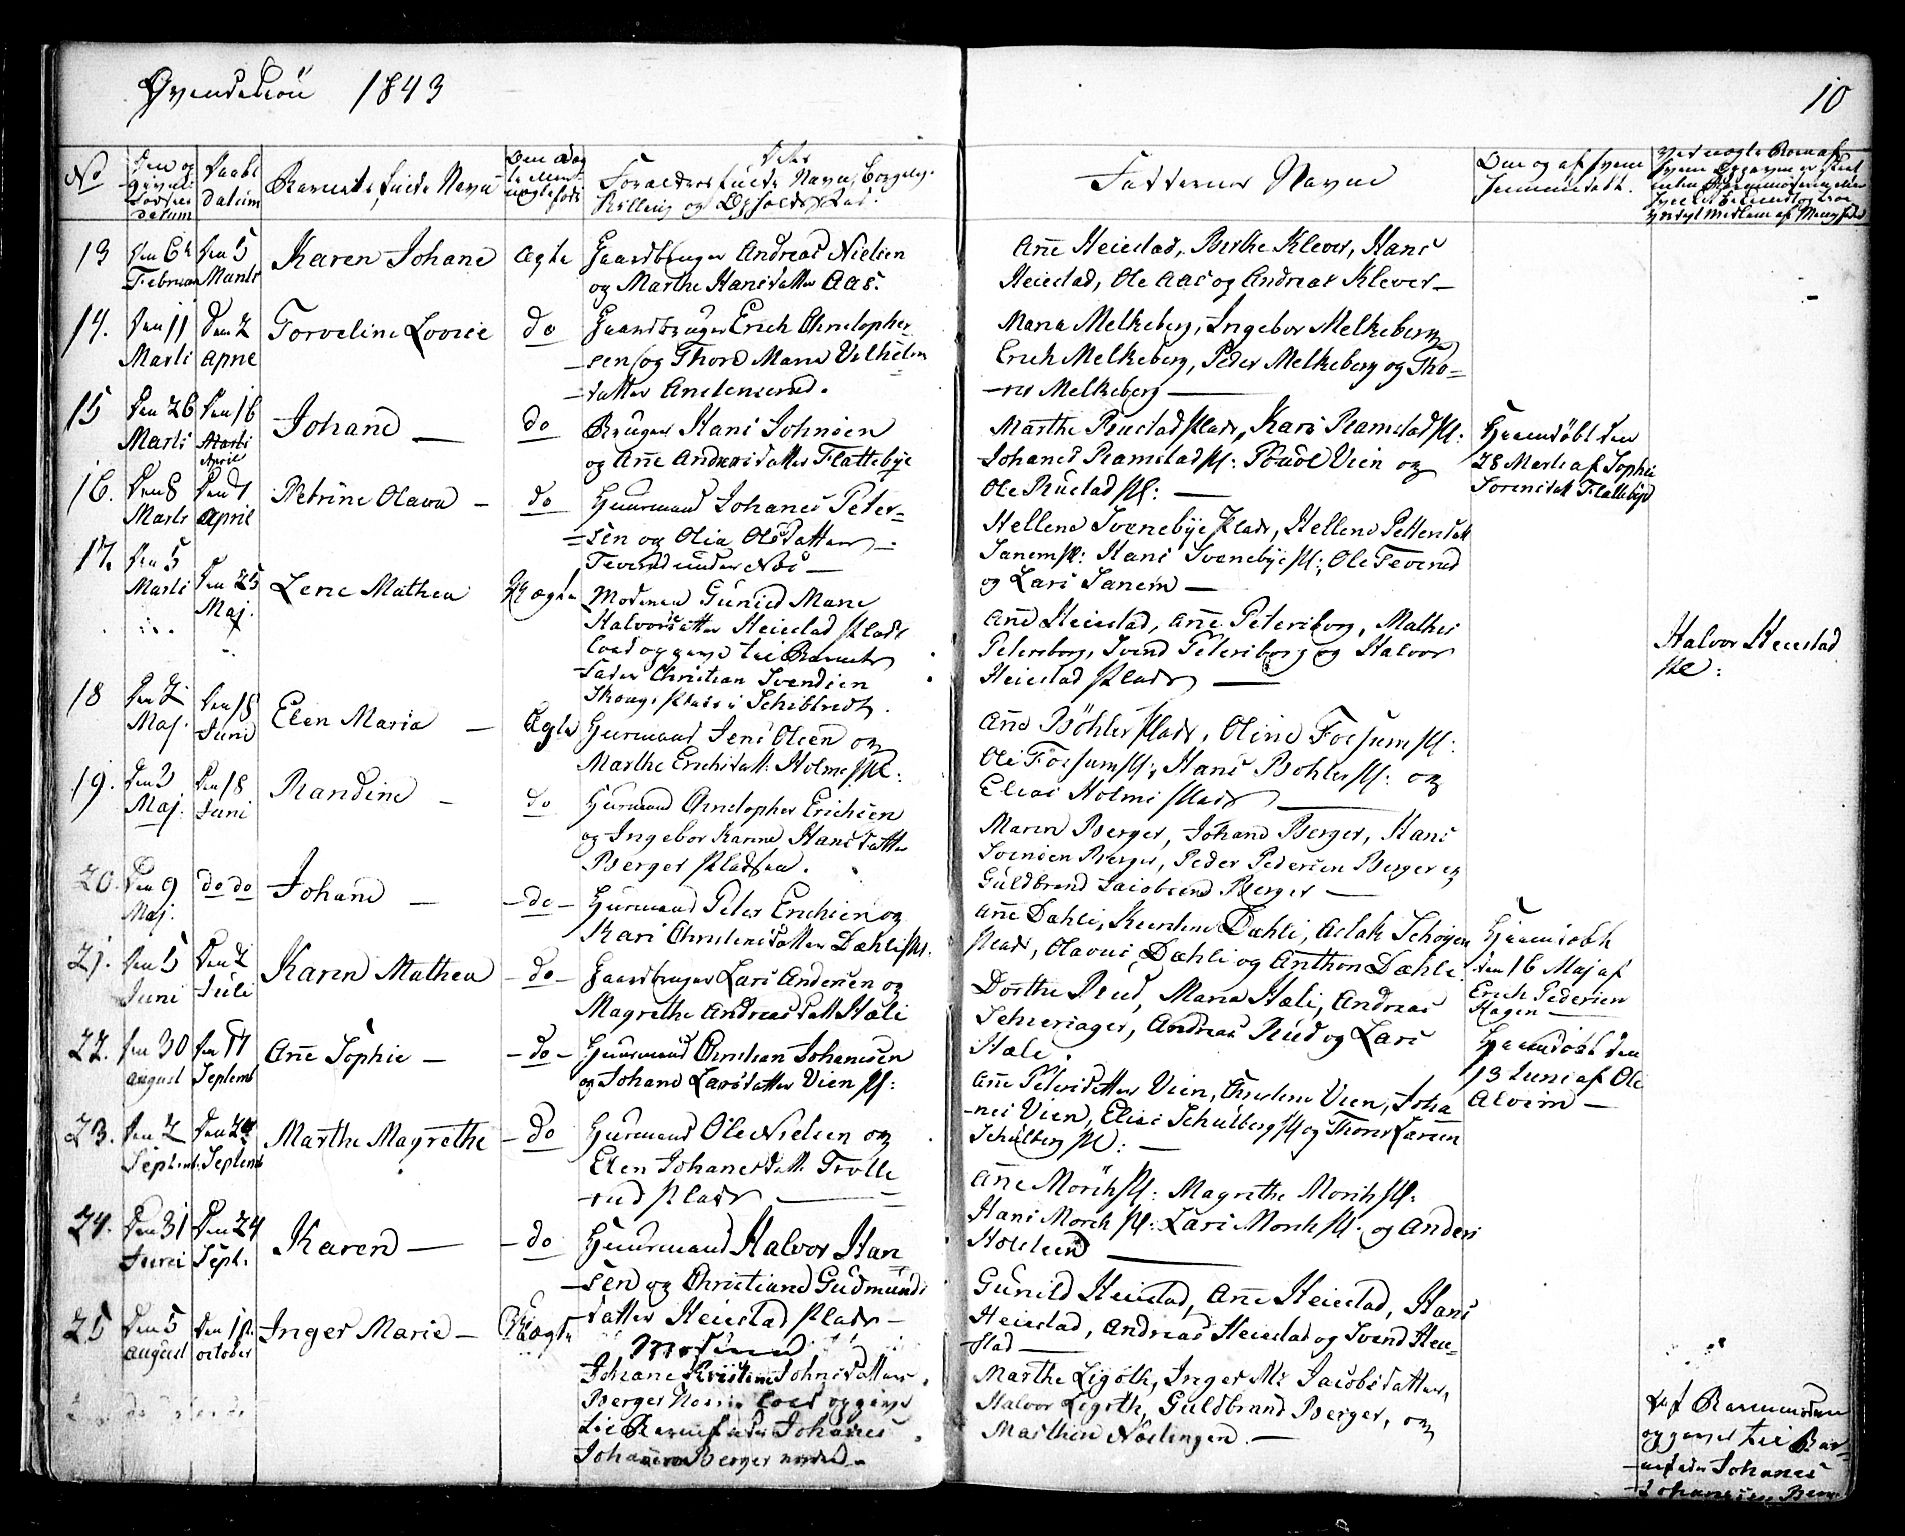 Qvendekiön 1843
10
No
Den og
Födsels
datum
Daabs
datum
Barnets fulde Navn
Forældres fulde Navn, Borgelige
Stilling og Opholds Sted.
Faddernes Navne
Den og af hvem
hjemmedøbt.
13
Den 6te
Februar
Den 5
Marts
Karen Johane
Ægte
Gaardbruger Andreas Nielsen
og Marthe Hansdatter Aas.
Ane Heiestad, Birthe Klever, Hans
Heiestad, Ole Aas og Andreas Klever—
14.
Den 11
Marti
Den 2
April
Torveline Lovise
do
Gaardbruger Erich Christopher-
-sen og Thore Maria Vilhelm
-datter Andenserud.
Maria Melkeberg, Ingebor Melkeberg
Erich Melkeberg, Peder Melkeberg og Tho-
-res Melkeberg —
15
Den 26
Marti
Den 16
Marti
April
Johane —
do
Bruger Hans Johnsen
og Ane Andersdatter Flattebye
Marthe Rustad plads, Kari Ramstad pl:
Johanes Ramstad pl: Poul Vien og
Ole Rustad pl: —
Hjemdöbt den
28 Marti af Sophie
Sorensdatt Flattebye
16.
Den 8
Marti
Den 7
April
Petrine Olava —
do
Huusmand Johanes Peter-
-sen og Olia Olsdatter —
Teverud under Næs —
Hellene Svenebye plads, Hellene Pettersdatt
Sanem pl: Hans Svenebye pl:, Ole Teverud
og Lars Sanem —
17.
Den 5
Marti
Den 25
Maj.
Lene Mathea
Uægte
Moderen Gunild Marie
Halvorsdatter Heiestad plads
lod opgive til Barnets
Fader Christian Svendsen
Skougs plads i Schibtvedt.
Ane Heiestad, Ane Petersborg, Mathis
Petersborg, Svend Petersborg og Halvor
Heiestad plads —
Halvor Heiestad
pl:
18
Den 2
Maj.
Den 18
Juni
Elen Maria —
Ægte
Huusmand Jens Olsen og
Marthe Erichsdatt: Holms pl:
Ane Böhler plads, Oline Fossum pl:
Ole Fossum pl:, Hans Bohler pl: og
Elias Holms plads —
19.
Den 3
Maj.
Den 18
Juni
Randine —
do
Huusmand Christopher Erichsen
og Ingebor Karine Hansdatter
Berger pladsen.
Maren Berger, Johane Berger, Hans
Svensen Berger, Peder Pedersen Berger og
Guldbrand Jacobsen Berger —
20.
Den 9
Maj.
do do
Johane —
—do—
Huusmand Peter Erichsen og
Kari Christensdatter Dæhli pl.
Ane Dahli, Kirstine Dæhli, Aslak Schogen
plads, Olavus Dæhli og Anthon Dæhli
Hjemdöbt
den 16 Maj af
Erich Pedersen
Hagen —
21.
Den 5
Juni
Den 2
Juli
Karen Mathea
—do—
Gaardbruger Lars Andersen og
Magrethe Andreasdatt Hæli
Dorthe Rud, Maria Hæli, Andreas
Schieriager, Andreas Rud og Lars
Hæli.
Hjemdöbt den
13 Juni af Ole
Alvim —
22.
Den 30
August
Den 17
Septemb
Ane Sophie —
—do—
Huusmand Christian Johanesen
og Johane Larsdatter Vien pl:
Ane Petersdatter Vien, Christine Vien, Joha
-nes Vien, Elias Schulberg pl og Thores Larsen
Schulberg pl: —
23.
Den 2
Septemb.
Den 24
Septemb
Marthe Magrethe
—do
Huusmand Ole Nielsen og
Elen Johanesdatt Trolle
-rud plads —
Ane Mörch pl: Magrethe Morch pl:
Hans Morch pl: Lars Morch pl. og Anders
Holsteen —
24.
Den 31
Juni
Den 24
Sept.
Karen —
—do
Huusmand Halvor Han
-sen og Christiane Gudmunds
datter Heiestad plads —
Gunild Heiestad, Ane Heiestad, Hans
Heiestad, Andreas Heiestad og Svend Heie-
stad —
25
Den 5
August
Den 1st.
October
Inger Marie —
Uægte
Moderen
Johane Kristine Johnsdatter
Berger Nordre lod opgive
til Barnefader Johanes
Johanesen Berger nordre.
Marthe Ligoth, Inger M: Jacobsdatter,
Halvor Ligoth, Guldbrand Berger, og
Marthine Nöslingen. —
Af Barnemoderen
opgivet til Bar-
-nefader Johanes
-Johanesen Berg